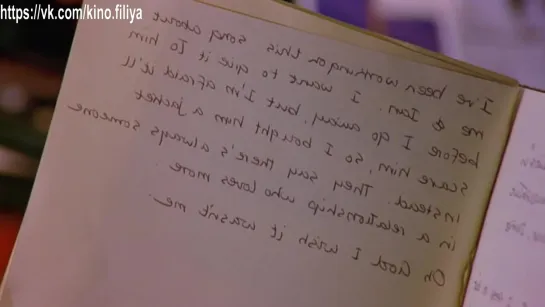 https://vk.com/kino.filiya
I've been working on this song about
me & Ian. I want to give it to him
before I go away, but I'm afraid it'll
scare him, so I bought him a jacket
instead. They say there's always someone
in a relationship who loves more.
Oh God I wish it wasn't me.